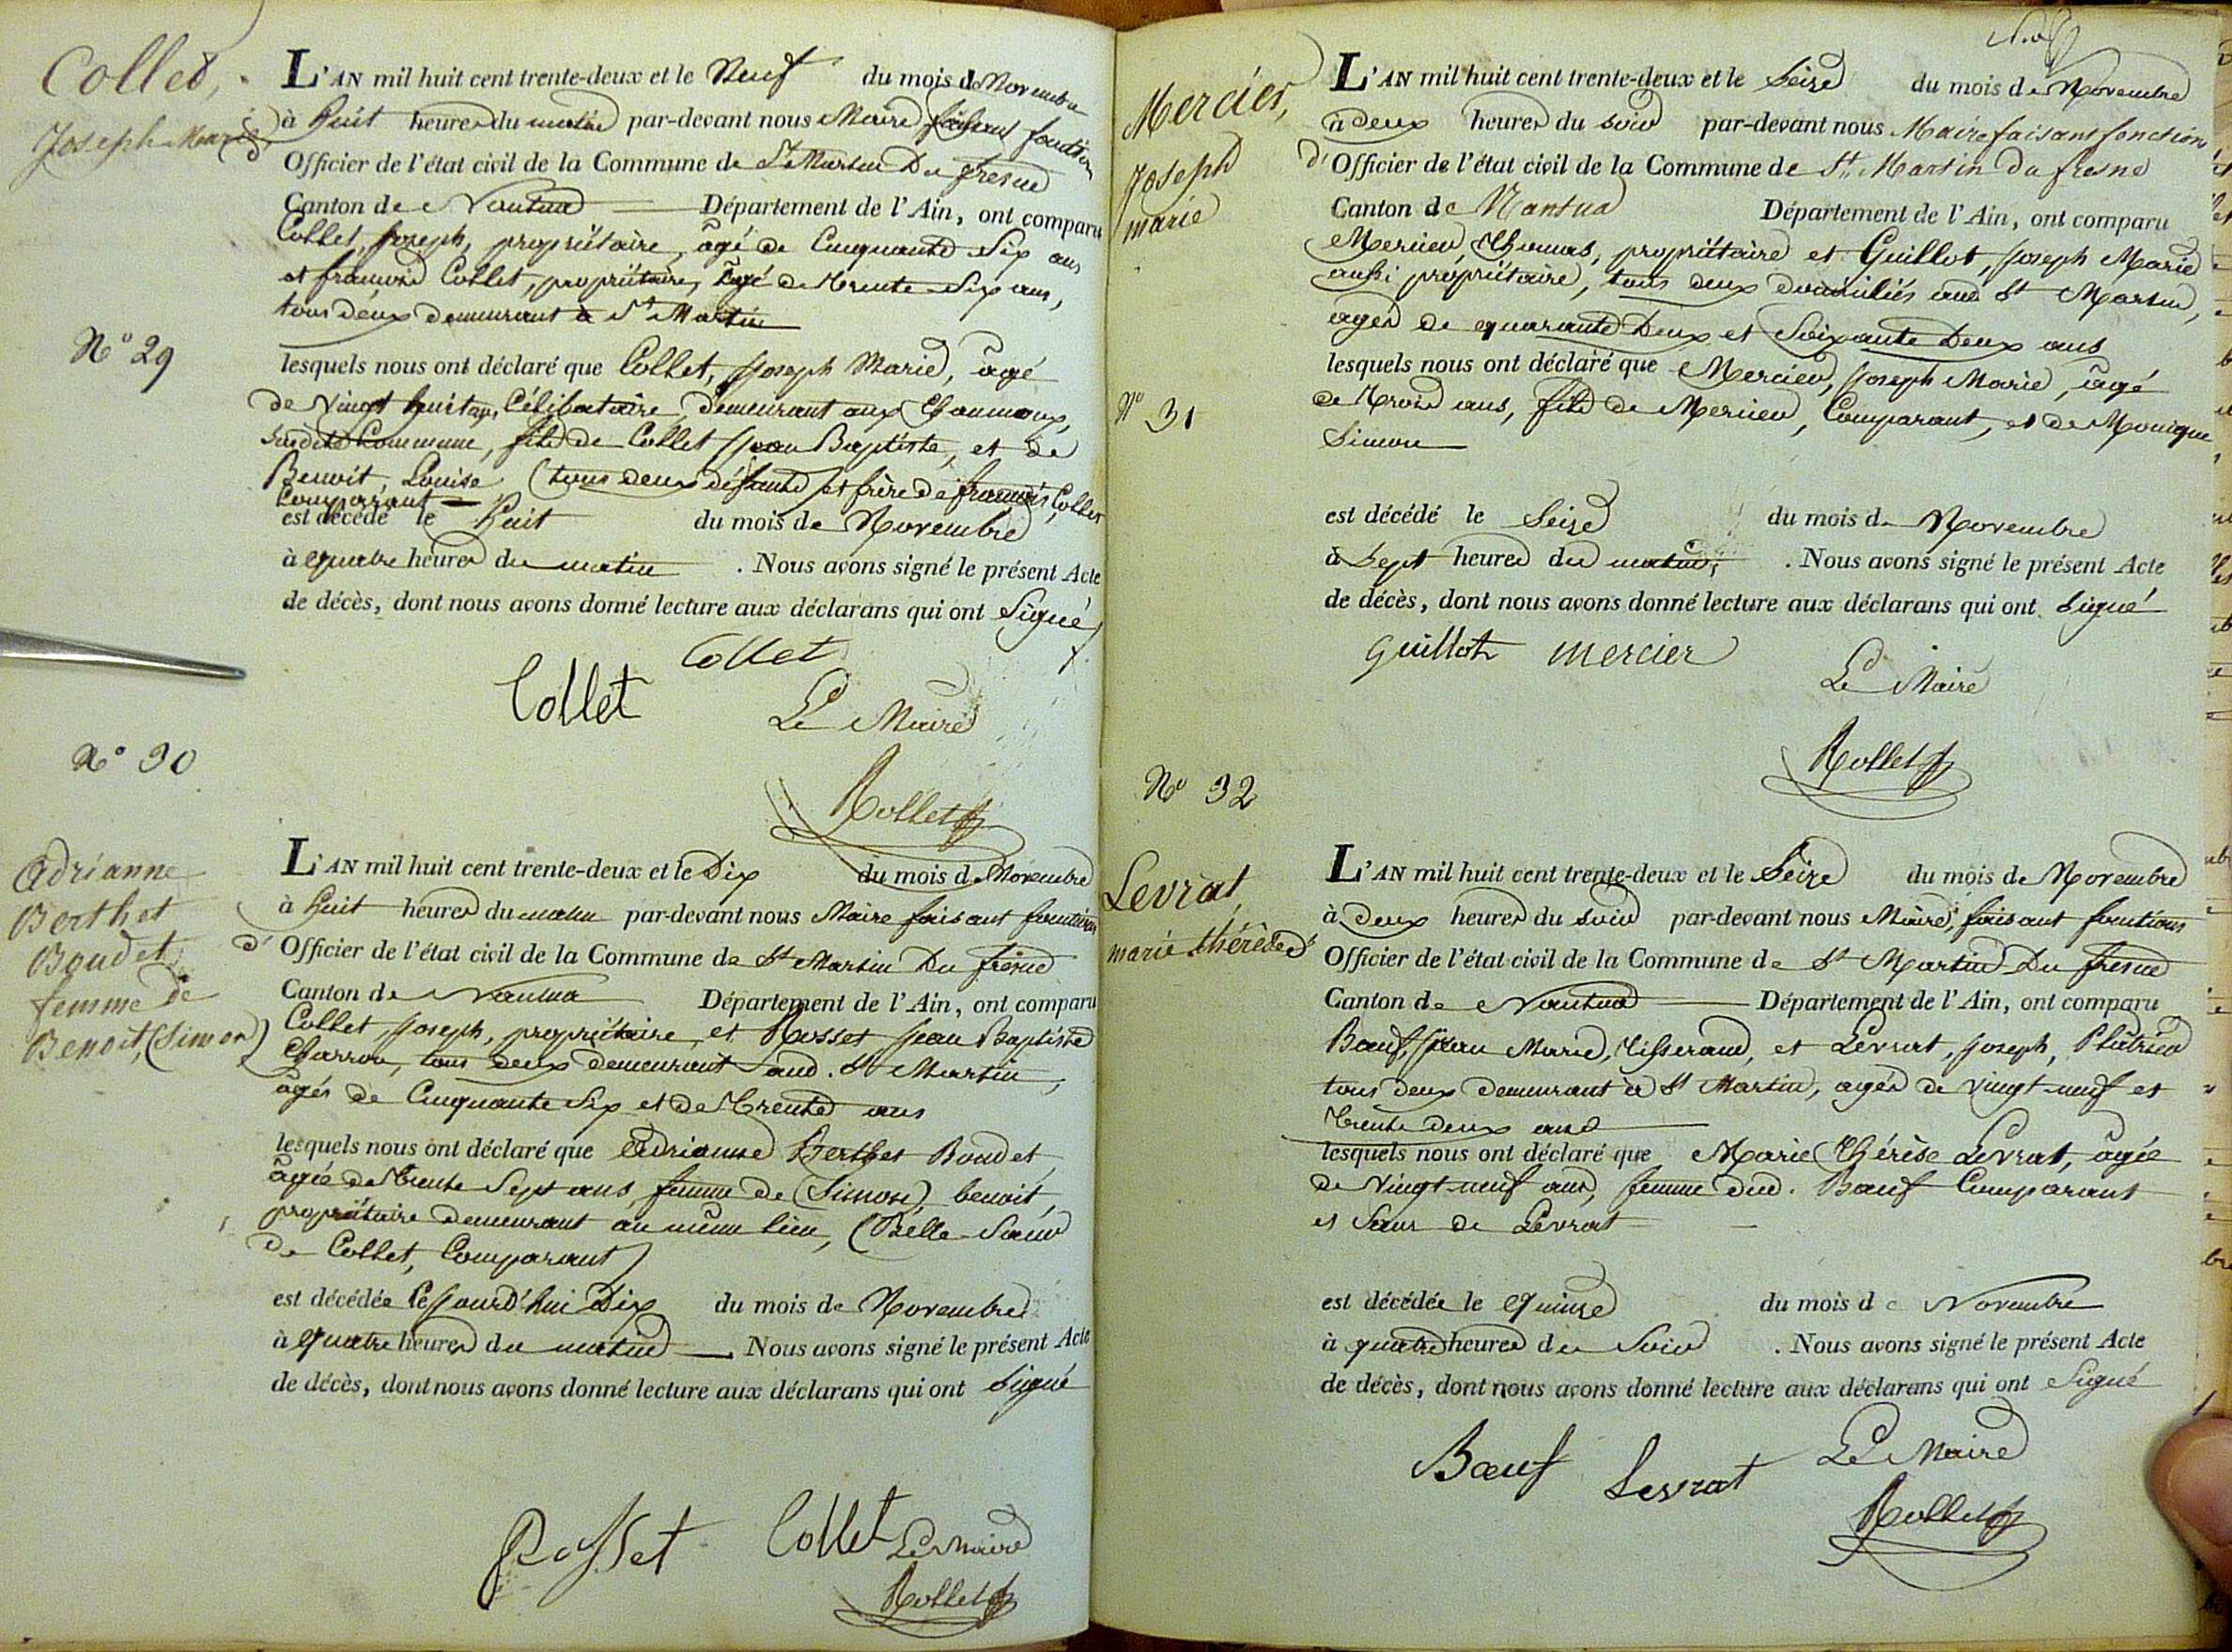 Collet,
Joseph Marie
L'AN mil huit cent trente-deux et le Neuf du mois de Novembre
à huit heures du matin par-devant nous Maire faisant fonction
d'Officier de l'état civil de la Commune de St Martin Du fresne
Canton de Nantua Département de l'Ain, ont comparu
Collet, Joseph, propriétaire, âgé de Cinquante Six ans
et francois Collet, propriétaire, âgé de trente-Six ans,
tous deux demeurant à St Martin
N° 29
lesquels nous ont déclaré que Collet, Joseph Marie, âgé
de vingt huit ans, Célibataire, demeurant aux
susdite Commune, fils de Collet Jean Baptiste, et de
Benoit, Louise (tous deux défunts) et frère de francois Collet
Comparant
est décédé le huit du mois de Novembre
à quatre heures du matin . Nous avons signé le présent Acte
de décès, dont nous avons donné lecture aux déclarans qui ont Signé
Collet
Collet
Le Maire
Rollet
N° 30
Adrianne
Berthet
Boudet
femme de
Benoit, (Simon)
L'AN mil huit cent trente-deux et le Dix du mois de Novembre
à huit heures du matin par-devant nous Maire faisant fonction
d'Officier de l'état civil de la Commune de St Martin Du fresne
Canton de Nantua Département de l'Ain, ont comparu
Collet, Joseph, propriétaire, et Rosset Jean Baptiste
Charron, tous deux demeurant aud. St Martin,
âgés de Cinquante Six et de trente ans
lesquels nous ont déclaré que Adrianne Berthet Boudet,
âgée de trente Sept ans, femme de (Simon) benoit,
propriétaire demeurant au même lieu, (Belle-Soeur
de Collet, Comparant)
est décédée le jourd'hui Dix du mois de Novembre
à quatre heures du matin . Nous avons signé le présent Acte
de décès, dont nous avons donné lecture aux déclarans qui ont Signé
Rosset Collet Le Maire
Rollet
Mercier,
Joseph
marie
L'AN mil huit cent trente-deux et le Seize du mois de Novembre
à deux heures du soir par-devant nous Maire faisant fonction
d'Officier de l'état civil de la Commune de St. Martin du fresne
Canton de Nantua Département de l'Ain, ont comparu
Mercier, Thomas, propriétaire et Guillot, Joseph Marie
aussi propriétaire, tous deux domiciliés aud St Martin,
ages de quarante Deux et Soixante Deux ans
N° 31
lesquels nous ont déclaré que Mercier, Joseph Marie, âgé
de trois ans, fils de Mercier, Comparant, et de Monique
Simon
est décédé le Seize du mois de Novembre
à Sept heures du matin, . Nous avons signé le présent Acte
de décès, dont nous avons donné lecture aux déclarans qui ont Signé
Guillot mercier
Le Maire
Rollet
N° 32
Levrat,
marie thérèse
L'AN mil huit cent trente-deux et le Seize du mois de Novembre
à deux heures du soir par-devant nous Maire, faisant fonctions
d'Officier de l'état civil de la Commune de St Martin Du fresne
Canton de Nantua Département de l'Ain, ont comparu
Boeuf, Jean Marie, tisserand, et Levrat, Joseph, Plâtrier
tous deux demeurant à St Martin, agés de vingt-neuf et
trente deux ans
lesquels nous ont déclaré que Marie Thérèse Levrat, âgée
de vingt-neuf ans, femme dud. Boeuf Comparant
et Soeur de Levrat
est décédée le quinze du mois de Novembre
à quatre heures du Soir . Nous avons signé le présent Acte
de décès, dont nous avons donné lecture aux déclarans qui ont Signé
Boeuf Levrat Le Maire
Rollet